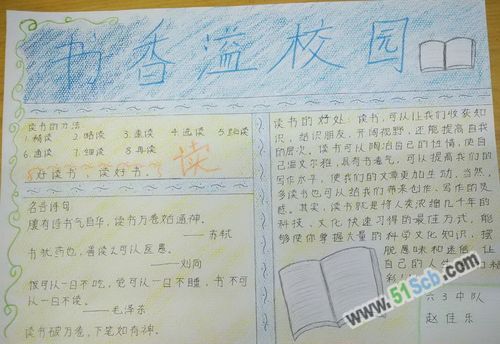 书香溢校园
读书的方法
1.精读 2.略读 3.速读 4.选读 5.
6.通读 7.细读 8.再读
好读书, 读好书。
读
名言诗句
腹有诗书气自华, 读书万卷始通神。
——苏轼
书犹药也, 善读之可以医愚。
——刘向
饭可以一日不吃, 觉可以一日不睡, 书不可
以一日不读。
——毛泽东
读书破万卷, 下笔如有神。
读书的好处: 读书, 可以让我们收获知
识, 结识朋友, 开阔视野, 还能提高自我
的层次。读书可以陶冶自己的性情, 使自
己温文尔雅, 具有书卷气, 可以提高我们的
写作水平, 使我们的文章更加生动。当然,
多读书也可以给我们带来创作、写作的灵
感。其实, 读书就是将人类浓缩几千年的
科技、文化快速习得的最佳方式, 能
够使你掌握大量的科学文化知识, 摆
脱愚昧和迷信, 让
自己的人生
www.51Scb.com
六3中队
赵佳乐